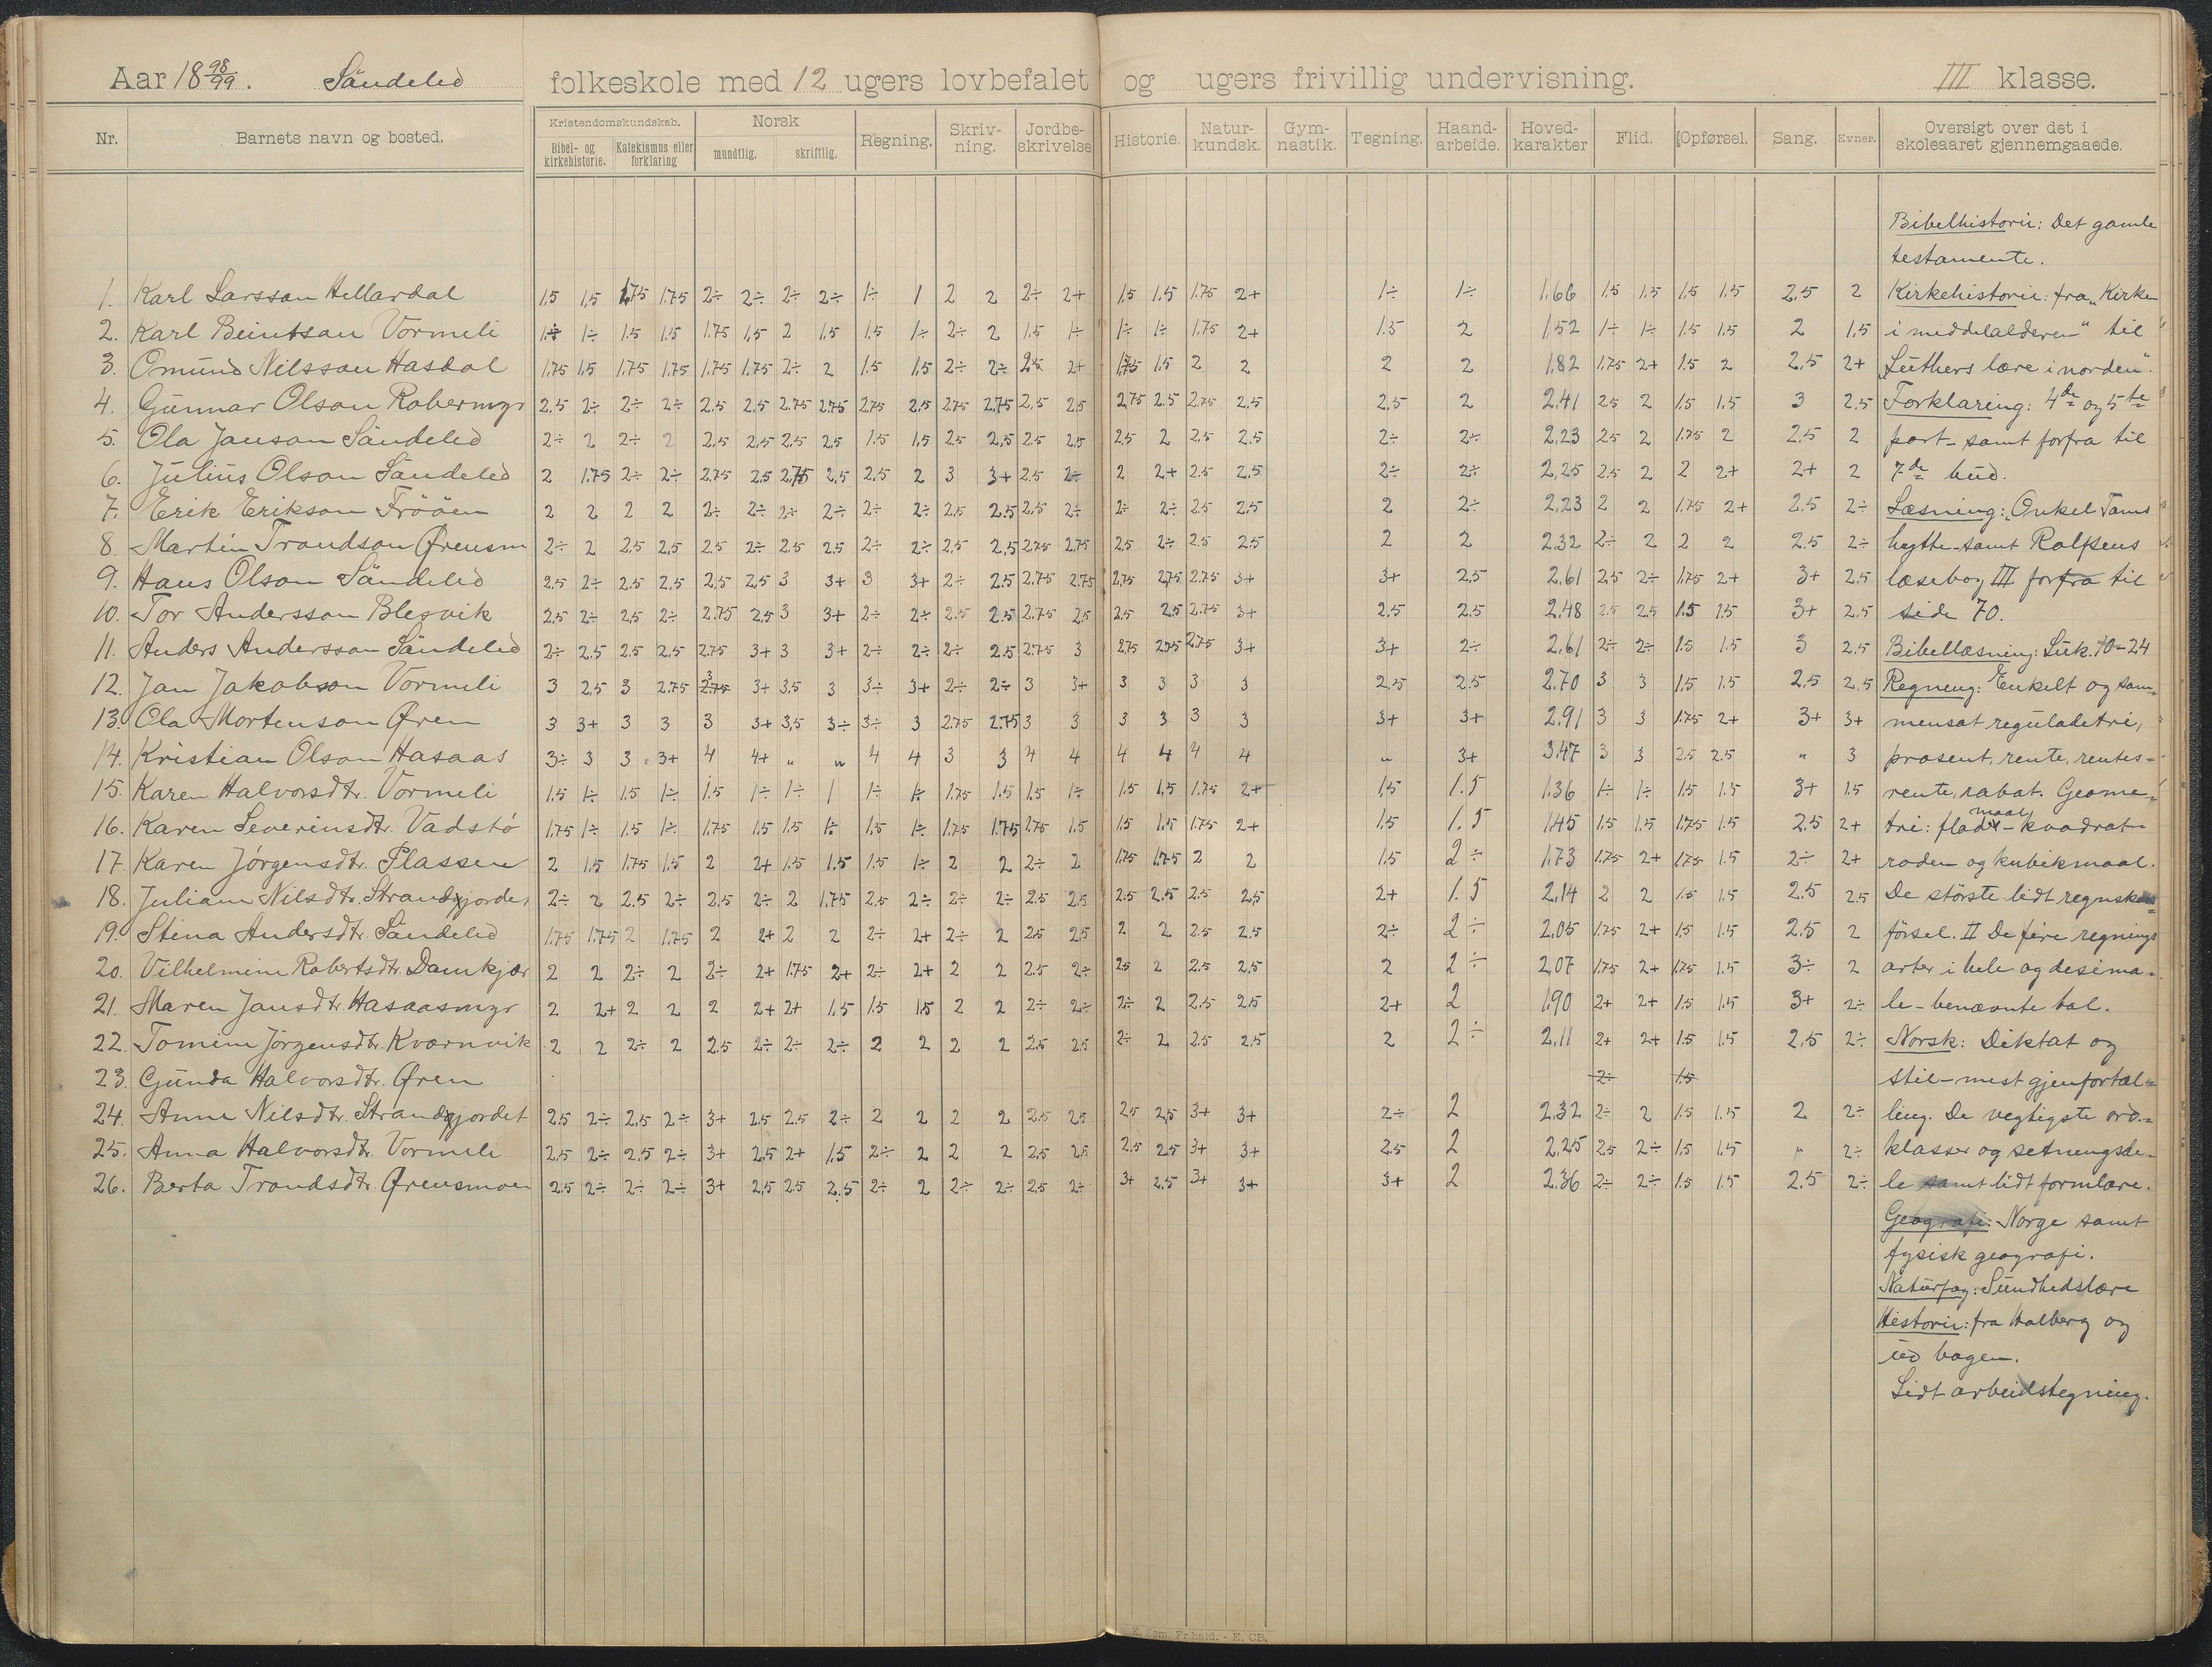 Aar 18 98/99. Søndeled folkeskole med 12 ugers lovbefalet og ugers frivillig undervisning. III klasse.
Nr. Barnets navn og bosted. Kristendomskundskab. Bibel- og kirkehistorie. Katekismus eller forklaring Norsk mundtlig. skriftlig. Regning. Skriv-ning. Jordbe-skrivelse Historie. Natur-kundsk. Gym-nastik. Tegning. Haand-arbeide. Hoved-karakter Flid. Opførsel. Sang. Evner. Oversigt over det i skoleaaret gjennemgaaede.
Bibelhistorie: Det gamle
testamente.
1. Karl Larsson Hellardal 1.5 1.5 1.75 1.75 2÷ 2÷ 2÷ 2÷ 1÷ 1 2 2 2÷ 2+ 1.5 1.5 1.75 2+ 1÷ 1÷ 1.66 1.5 1.5 1.5 1.5 2.5 2 Kirkehistorie: fra "Kirken
2. Karl Beintson Vormeli 1÷ 1÷ 1.5 1.5 1.75 1.5 2 1.5 1.5 1÷ 2÷ 2 1.5 1÷ 1÷ 1÷ 1.75 2+ 1.5 2 1.52 1÷ 1÷ 1.5 1.5 2 1.5 i middelalderen" til
3. Omund Nilsson Hasdal 1.75 1.5 1.75 1.75 1.75 1.75 2÷ 2 1.5 1.5 2÷ 2÷ 2.5 2+ 1.75 1.5 2 2 2 2 1.82 1.75 2+ 1.5 2 2.5 2+ "Luthers lære i norden".
4. Gunnar Olson Robermyr 2.5 2÷ 2÷ 2÷ 2.5 2.5 2.75 2.75 2.75 2.5 2.75 2.75 2.5 2.5 2.75 2.5 2.75 2.5 2.5 2 2.41 2.5 2 1.5 1.5 3 2.5 Forklaring: 4de og 5te
5. Ola Janson Søndeled 2÷ 2 2÷ 2 2.5 2.5 2.5 2.5 1.5 1.5 2.5 2.5 2.5 2.5 2.5 2 2.5 2.5 2÷ 2÷ 2.23 2.5 2 1.75 2 2.5 2 part - samt forfra til
6. Julius Olson Søndeled 2 1.75 2÷ 2÷ 2.75 2.5 2.75 2.5 2.5 2 3 3+ 2.5 2÷ 2 2+ 2.5 2.5 2÷ 2÷ 2.25 2.5 2 2 2+ 2+ 2 7de bud.
7. Erik Erikson Frööen 2 2 2 2 2÷ 2÷ 2÷ 2÷ 2÷ 2÷ 2.5 2.5 2.5 2÷ 2÷ 2÷ 2.5 2.5 2 2÷ 2.23 2 2 1.75 2+ 2.5 2÷ Læsning: "Onkel Toms
8. Martin Trondson Ørensm 2÷ 2 2.5 2.5 2.5 2÷ 2.5 2.5 2÷ 2÷ 2.5 2.5 2.75 2.75 2.5 2÷ 2.5 2.5 2 2 2.32 2÷ 2 2 2 2.5 2÷ hytte - samt Rolfsens
9. Hans Olson Søndeled 2.5 2÷ 2.5 2.5 2.5 2.5 3 3+ 3 3+ 2÷ 2.5 2.75 2.75 2.75 2.75 2.75 3+ 3+ 2.5 2.61 2.5 2÷ 1.75 2+ 3+ 2.5 læsebog III forfra til
10. Tor Andersson Blegvik 2.5 2÷ 2.5 2÷ 2.75 2.5 3 3+ 2÷ 2÷ 2.5 2.5 2.75 2.5 2.5 2.5 2.75 3+ 2.5 2.5 2.48 2.5 2.5 1.5 1.5 3+ 2.5 side 70.
11. Anders Andersson Søndeled 2÷ 2.5 2.5 2.5 2.75 3+ 3 3+ 2÷ 2÷ 2÷ 2.5 2.75 3 2.75 2.75 2.75 3+ 3+ 2÷ 2.61 2÷ 2÷ 1.5 1.5 3 2.5 Bibellæsning: Luk. 10-24
12. Jan Jakobson Vormeli 3 2.5 3 2.75 3 3+ 3.5 3 3÷ 3+ 2÷ 2÷ 3 3+ 3 3 3 3 2.5 2.5 2.70 3 3 1.5 1.5 2.5 2.5 Regning: Enkelt og sam=
13. Ola Mortenson Øren 3 3+ 3 3 3 3+ 3.5 3÷ 3÷ 3 2.75 2.75 3 3 3 3 3 3 3+ 3+ 2.91 3 3 1.75 2+ 3+ 3+ mensat reguladetri,
14. Kristian Olson Hasaas 3÷ 3 3 3+ 4 4+ " " 4 4 3 3 4 4 4 4 4 4 " 3+ 3.47 3 3 2.5 2.5 " 3 prosent, rente, rentes=
15. Karen Halvorsdtr. Vormeli 1.5 1÷ 1.5 1÷ 1.5 1÷ 1÷ 1 1÷ 1÷ 1.75 1.5 1.5 1÷ 1.5 1.5 1.75 2+ 1.5 1.5 1.36 1÷ 1÷ 1.5 1.5 3+ 1.5 rente, rabat. Geome=
16. Karen Severinsdtr. Vadstø 1.75 1÷ 1.5 1÷ 1.75 1.5 1.5 1÷ 1.5 1÷ 1.75 1.75 2.75 1.5 1.5 1.5 1.75 2+ 1.5 1.5 1.45 1.5 1.5 1.75 1.5 2.5 2+ tri: flademaal - kvadrat=
17. Karen Jørgensdtr. Plassen 2 1.5 1.75 1.5 2 2+ 1.5 1.5 1.5 1÷ 2 2 2÷ 2 1.75 1.75 2 2 1.5 2÷ 1.73 1.75 2+ 1.75 1.5 2÷ 2+ roden og kubikmaal.
18. Juliane Nilsdtr. Strandgjordet 2÷ 2 2.5 2÷ 2.5 2÷ 2 1.75 2.5 2÷ 2÷ 2÷ 2.5 2.5 2.5 2.5 2.5 2.5 2+ 1.5 2.14 2 2 1.5 1.5 2.5 2.5 De største lidt regnskabs=
19. Stina Andersdtr. Søndeled 1.75 1.75 2 1.75 2 2+ 2 2 2÷ 2+ 2÷ 2 2.5 2.5 2 2 2.5 2.5 2÷ 2÷ 2.05 1.75 2+ 1.5 1.5 2.5 2 førsel. II De fire regnings
20. Vilhelmine Robertsdtr. Damkjær 2 2 2÷ 2 2÷ 2+ 1.75 2+ 2÷ 2+ 2 2 2.5 2÷ 2.5 2 2.5 2.5 2 2÷ 2.07 1.75 2+ 1.75 1.5 3÷ 2 arter i hele og desima=
21. Maren Jansdtr. Hasaasmyr 2 2+ 2 2 2 2+ 2+ 1.5 1.5 1.5 2 2 2÷ 2÷ 2÷ 2 2.5 2.5 2+ 2 1.90 2+ 2+ 1.5 1.5 3+ 2÷ le - benævnte tal.
22. Tomine Jørgensdtr. Kværnvik 2 2 2÷ 2 2.5 2÷ 2÷ 2÷ 2 2 2 2 2.5 2.5 2÷ 2 2.5 2.5 2 2÷ 2.11 2+ 2+ 1.5 1.5 2.5 2÷ Norsk: Diktat og
23. Gunda Halvorsdtr. Øren 2÷ 1.5 stil - mest gjenfortæl=
24. Anne Nilsdtr. Strandgjordet 2.5 2÷ 2.5 2÷ 3+ 2.5 2.5 2÷ 2 2 2 2 2.5 2.5 2.5 2.5 3+ 3+ 2÷ 2 2.32 2÷ 2 1.5 1.5 2 2÷ ling. De vegtigste ord=
25. Anna Halvorsdtr. Vormeli 2.5 2÷ 2.5 2÷ 3+ 2.5 2+ 1.5 2÷ 2 2 2 2.5 2.5 2.5 2.5 3+ 3+ 2.5 2 2.25 2.5 2÷ 1.5 1.5 " 2÷ klasser og setningsde=
26. Berta Trondsdtr. Ørensmoen 2.5 2÷ 2÷ 2÷ 3+ 2.5 2.5 2.5 2÷ 2 2÷ 2÷ 2.5 2÷ 3+ 2.5 3+ 3+ 3+ 2 2.36 2÷ 2÷ 1.5 1.5 2.5 2÷ le samt lidt formlære.
Geografi: Norge samt
fysisk geografi.
Naturfag: Sundhedslære
Historie: fra Halberg og
ud bogen.
Lidt arbeidstegning.